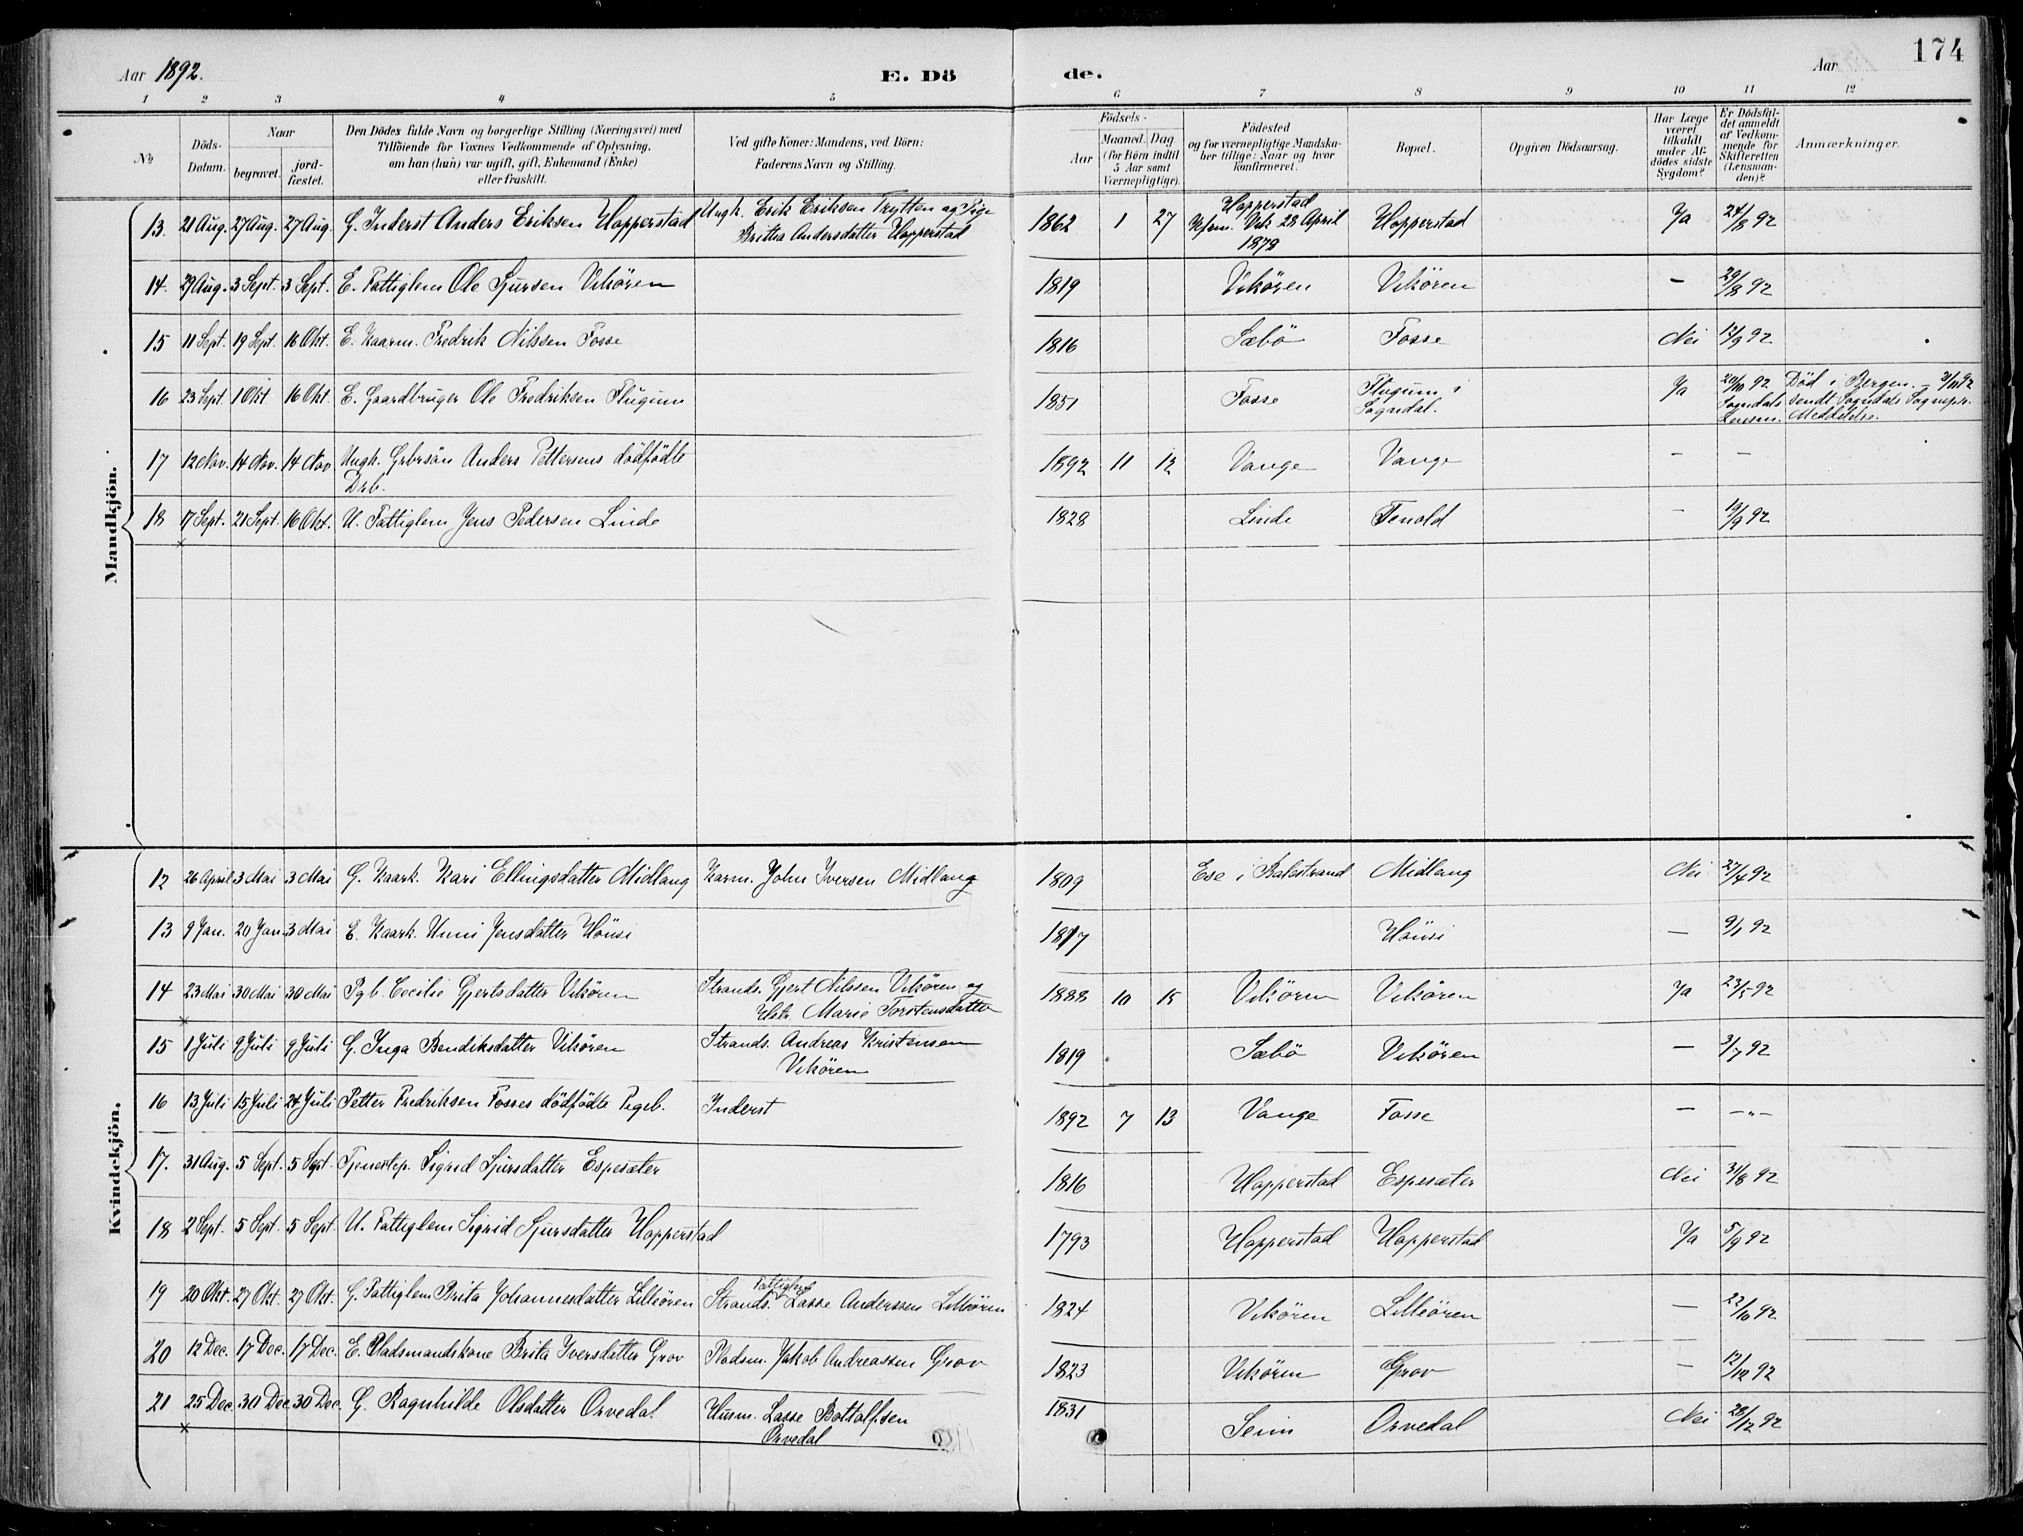 Aar 1892. E. Dö de. Aar 174
1 2 3 4 5 6 7 8 9 10 11 12
No
Döds-Datum.
Naar
begravet. jordfæstet.
Den Dödes fulde Navn og borgerlige Stilling (Næringsvei) med
Tilföiende for Voxnes Vedkommende af Oplysning,
om han (hun) var ugift, gift, Enkemand (Enke)
eller fraskilt.
Ved gifte Koner: Mandens, ved Börn:
Faderens Navn og Stilling.
Födsels-
Aar
Maaned. Dag
(for Börn indtil
5 Aar samt
Værnepligtige).
Födested
og for værnepligtige Mandska-
ber tillige: Naar og hvor
konfirmeret.
Bopæl.
Opgiven Dödsaarsag.
Har Læge
været
tilkaldt
under Af-
dödes sidste
Sygdom?
Er Dödsfal-
det anmeldt
af Vedkom-
mende for
Skifteretten
(Lensman-
den)?
Anmærkninger.
Mandkjön.
13. 21 Aug. 27 Aug. 27 Aug. G. Inderst Anders Eriksen Hopperstad Ungk. Erik Eriksen Trytten og Pige 1862 1 27 Hopperstad Hopperstad Ja 24/8 92
Brittha Andersdatter Hopperstad Kfrm. Vik 28 April
1878
14. 29 Aug. 3 Sept. 3 Sept. E. Fattiglem Ole Sjursen Vikören 1819 Vikören Vikören — 29/8 92
15 11 Sept. 19 Sept. 16 Okt. E. Kaarm. Fredrik Nilssen Fosse 1816 Sæbö Fosse Nei 12/9 92
16 23 Sept. 1 Okt. 16 Okt. E. Gaardbruger Ole Fredriksen Flugum 1851 Fosse Flugum i Ja 20/10 92 Död i Bergen.
Sogndal. Sogndals sendt Sogndals Sognepr.
Lensm. Meddelelse.
17 12 Nov. 14 Nov. 14 Nov. Ungk. Grbrsön Anders Pettersens dödfödte 1892 11 12 Vange Vange — —
Drb.
18 17 Sept. 21 Sept. 16 Okt. U. Fattiglem Jens Pedersen Linde 1828 Linde Tenold — 19/9 92
Kvindekjön.
12 26 April 3 Mai 3 Mai G. Kaark. Kari Ellingsdatter Midlang Karm. John Iversen Midlang 1809 Ese i Balestrand Midlang Nei 27/4 92
13 9 Jan. 20 Jan. 3 Mai E. Kaark. Unni Jensdatter Hönsi 1817 Hönsi — 9/1 92
14 23 Mai 30 Mai 30 Mai Pgb. Cecilie Gjertsdatter Vikören Strands. Gjert Nilssen Vikören og 1888 10 15 Vikören Vikören Ja 23/5 92
Hstr. Marie Torstensdatter
15 1 Juli 9 Juli 9 Juli G. Inga Bendiksdatter Vikören Strands. Andreas Kristensen 1819 Sæbö Vikören — 3/7 92
Vikören
16 13 Juli 15 Juli 24 Juli Petter Fredriksen Fosses dödfödte Pigeb. Inderst 1892 7 13 Vange Fosse — —"—
17. 31 Aug. 5 Sept. 5 Sept. Tjenestep. Sigrid Sjursdatter Espesæter 1816 Hopperstad Espesæter Nei 31/8 92
18 2 Sept. 5 Sept. 5 Sept. U. Fattiglem Sigrid Sjursdatter Hopperstad 1793 Hopperstad Hopperstad Ja 5/9 92
19 20 Okt. 27 Okt. 27 Okt. G. Fattiglem Brita Johannesdatter Lilleören Strands. Fattiglem Lasse Anderssen Lilleören 1824 Vikören Lilleören — 22/10 92
20 12 Dec. 17 Dec. 17 Dec. E. Pladsmandskone Brita Iversdatter Grov Pladsm. Jakob Andreassen Grov 1823 Vikören Grov — 12/12 92
21 25 Dec. 30 Dec. 30 Dec. G. Ragnhilde Olsdatter Orvedal Husm. Lasse Bottolfsen 1831 Seim Orvedal Nei 28/12 92
Orvedal